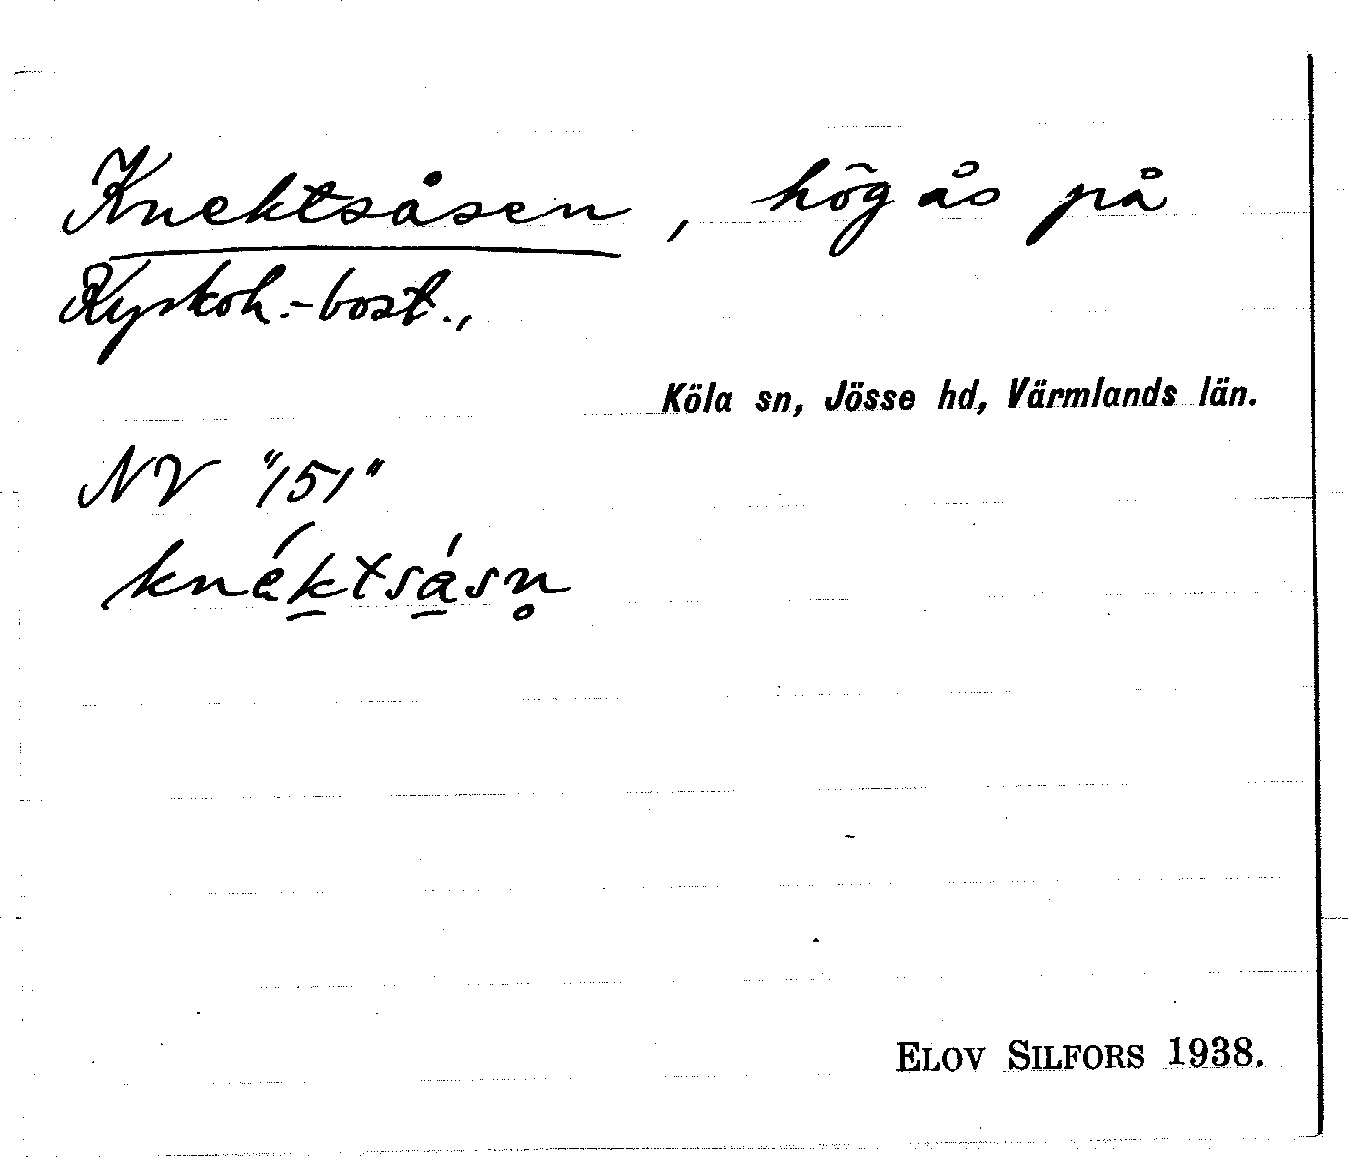 Knektsåsen, hög ås på
Kyrkoh.-bost.,
Köla sn, Jösse hd, Värmlands län.
NV "151"
knék̲tsá̲sn̥
ELOV SILFORS 1938.